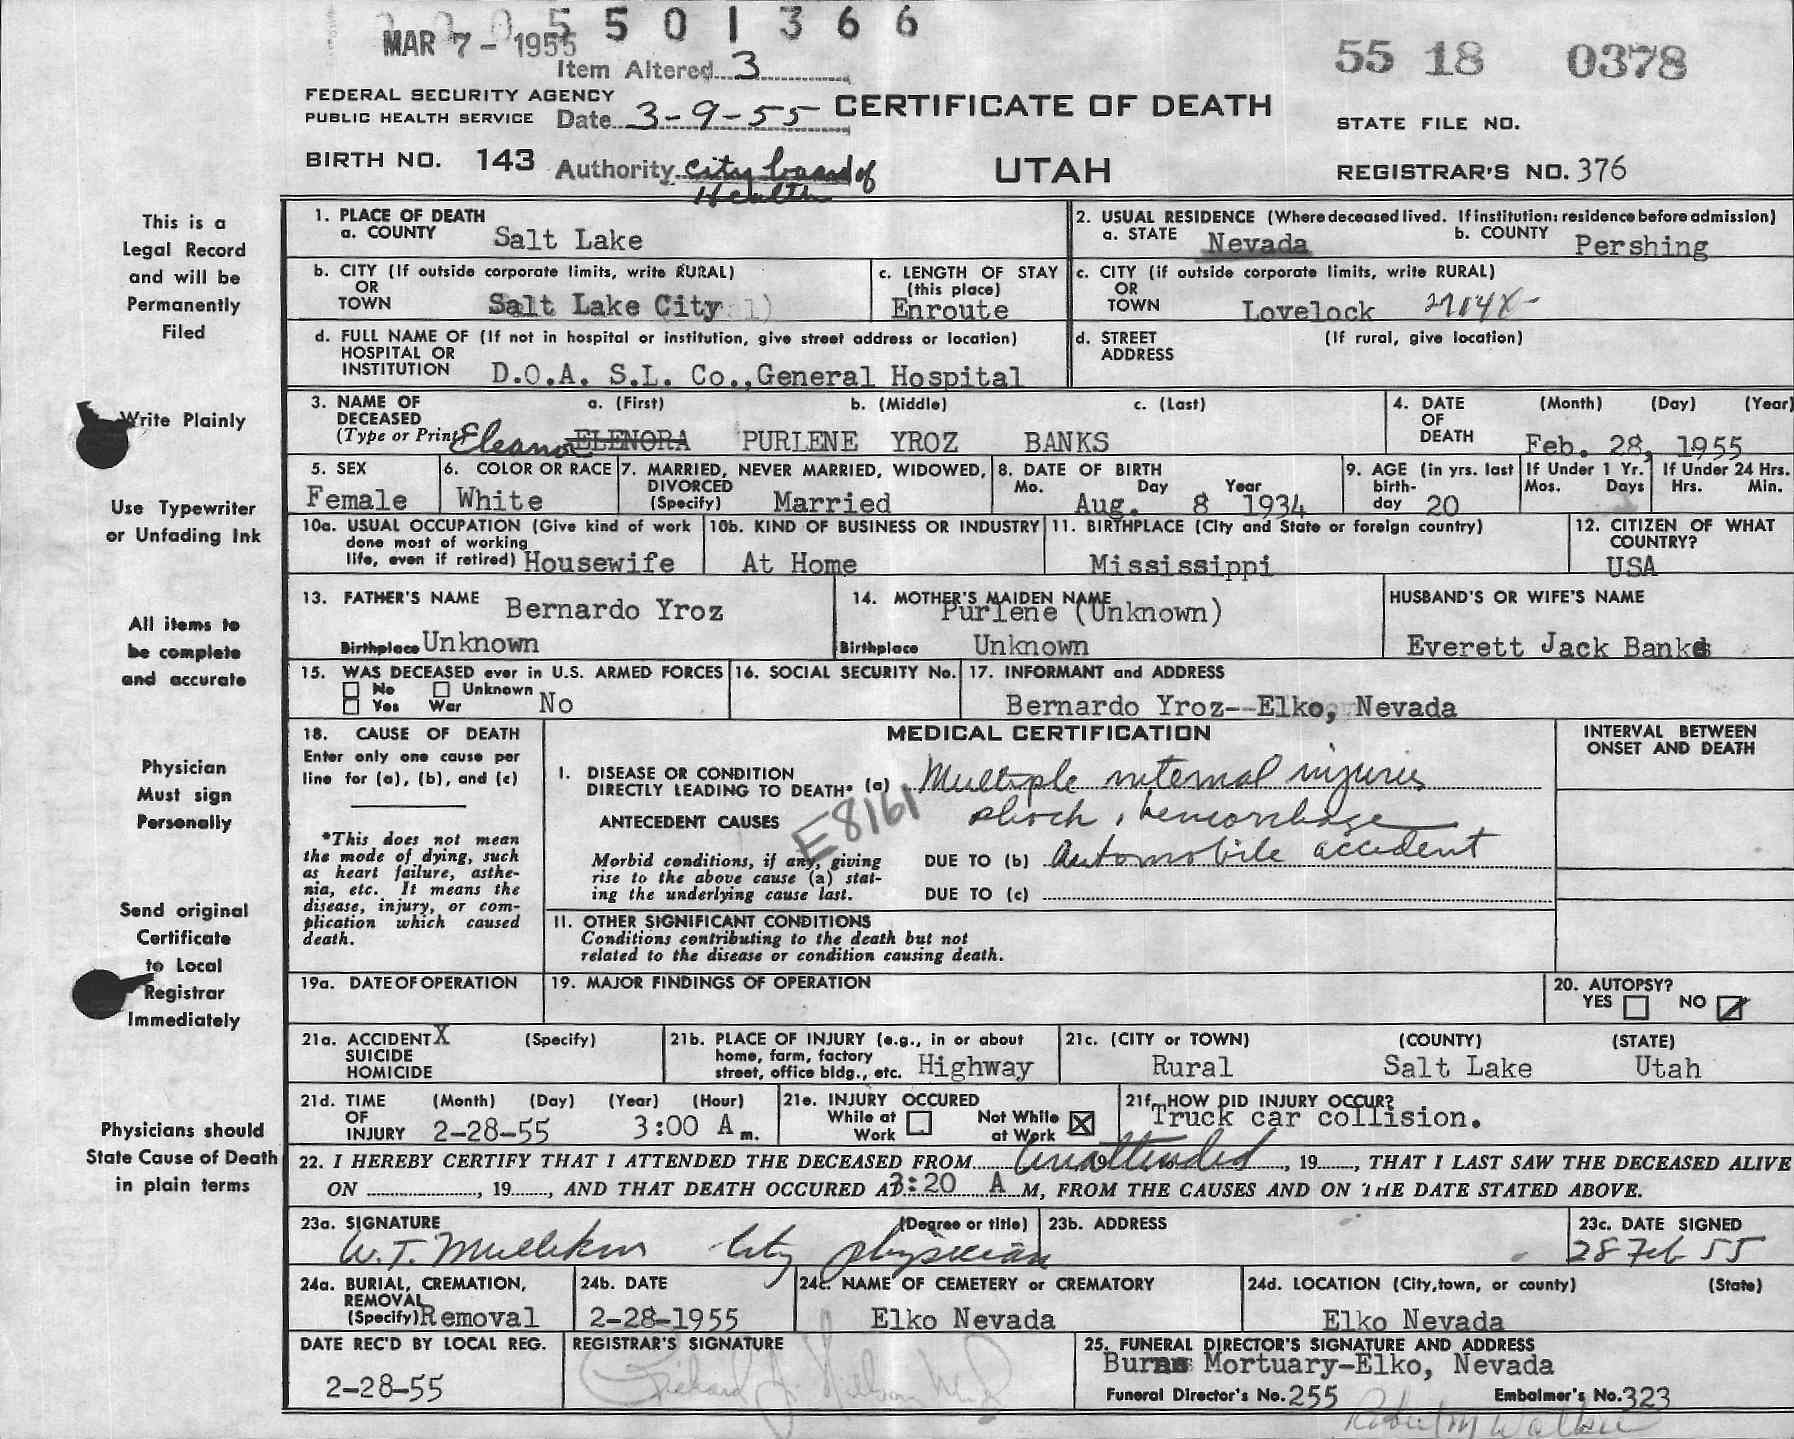 5 5 0 1 3 6 6
MAR 7 - 1955
Item Altered 3
55 18 0378
FEDERAL SECURITY AGENCY
PUBLIC HEALTH SERVICE
Date 3-9-55
CERTIFICATE OF DEATH
STATE FILE NO.
BIRTH NO. 143
Authority City board of Health
UTAH
REGISTRAR'S NO. 376
This is a
Legal Record
and will be
Permanently
Filed
Write Plainly
Use Typewriter
or Unfading Ink
All items to
be complete
and accurate
Physician
Must sign
Personally
Send original
Certificate
to Local
Registrar
Immediately
Physicians should
State Cause of Death
in plain terms
1. PLACE OF DEATH
a. COUNTY Salt Lake
2. USUAL RESIDENCE (Where deceased lived. If institution: residence before admission)
a. STATE Nevada b. COUNTY Pershing
b. CITY (If outside corporate limits, write RURAL)
OR
TOWN Salt Lake City
c. LENGTH OF STAY
(this place)
Enroute
c. CITY (if outside corporate limits, write RURAL)
OR
TOWN Lovelock
d. FULL NAME OF (If not in hospital or institution, give street address or location)
HOSPITAL OR
INSTITUTION D.O.A. S.L. Co.,General Hospital
d. STREET (If rural, give location)
ADDRESS
3. NAME OF a. (First) b. (Middle) c. (Last)
DECEASED
(Type or Print) Eleanor ELENORA PURLENE YROZ BANKS
4. DATE (Month) (Day) (Year)
OF
DEATH Feb. 28, 1955
5. SEX
Female
6. COLOR OR RACE
White
7. MARRIED, NEVER MARRIED, WIDOWED,
DIVORCED
(Specify) Married
8. DATE OF BIRTH
Mo. Day Year
Aug. 8 1934
9. AGE (in yrs. last
birth-
day 20
If Under 1 Yr.
Mos. Days
If Under 24 Hrs.
Hrs. Min.
10a. USUAL OCCUPATION (Give kind of work
done most of working
life, even if retired) Housewife
10b. KIND OF BUSINESS OR INDUSTRY
At Home
11. BIRTHPLACE (City and State or foreign country)
Mississippi
12. CITIZEN OF WHAT
COUNTRY?
USA
13. FATHER'S NAME Bernardo Yroz
Birthplace Unknown
14. MOTHER'S MAIDEN NAME
Purlene (Unknown)
Birthplace Unknown
HUSBAND'S OR WIFE'S NAME
Everett Jack Banks
15. WAS DECEASED ever in U.S. ARMED FORCES
No Unknown
Yes War No
16. SOCIAL SECURITY No.
17. INFORMANT and ADDRESS
Bernardo Yroz--Elko, Nevada
18. CAUSE OF DEATH
Enter only one cause per
line for (a), (b), and (c)
*This does not mean
the mode of dying, such
as heart failure, asthe-
nia, etc. It means the
disease, injury, or com-
plication which caused
death.
MEDICAL CERTIFICATION
INTERVAL BETWEEN
ONSET AND DEATH
I. DISEASE OR CONDITION
DIRECTLY LEADING TO DEATH* (a) Multiple internal injuries
shock, hemorrhage
E8161
ANTECEDENT CAUSES
Morbid conditions, if any, giving
rise to the above cause (a) stat-
ing the underlying cause last.
DUE TO (b) Automobile accident
DUE TO (c)
II. OTHER SIGNIFICANT CONDITIONS
Conditions contributing to the death but not
related to the disease or condition causing death.
19a. DATE OF OPERATION
19. MAJOR FINDINGS OF OPERATION
20. AUTOPSY?
YES NO
21a. ACCIDENT X (Specify)
SUICIDE
HOMICIDE
21b. PLACE OF INJURY (e.g., in or about
home, farm, factory
street, office bldg., etc. Highway
21c. (CITY or TOWN) (COUNTY) (STATE)
Rural Salt Lake Utah
21d. TIME (Month) (Day) (Year) (Hour)
OF
INJURY 2-28-55 3:00 A m.
21e. INJURY OCCURED
While at Work Not While at Work X
21f. HOW DID INJURY OCCUR?
Truck car collision.
22. I HEREBY CERTIFY THAT I ATTENDED THE DECEASED FROM Unattended, 19, THAT I LAST SAW THE DECEASED ALIVE
ON , 19, AND THAT DEATH OCCURED AT 3:20 A M, FROM THE CAUSES AND ON THE DATE STATED ABOVE.
23a. SIGNATURE (Degree or title)
W.T. Mullikin City physician
23b. ADDRESS
23c. DATE SIGNED
28 Feb 55
24a. BURIAL, CREMATION,
REMOVAL
(Specify) Removal
24b. DATE
2-28-1955
24c. NAME OF CEMETERY or CREMATORY
Elko Nevada
24d. LOCATION (City, town, or county) (State)
Elko Nevada
DATE REC'D BY LOCAL REG.
2-28-55
REGISTRAR'S SIGNATURE
25. FUNERAL DIRECTOR'S SIGNATURE AND ADDRESS
Burns Mortuary-Elko, Nevada
Funeral Director's No. 255 Embalmer's No. 323